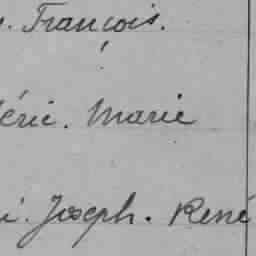 . François.
éric. Marie
i. Joseph. René